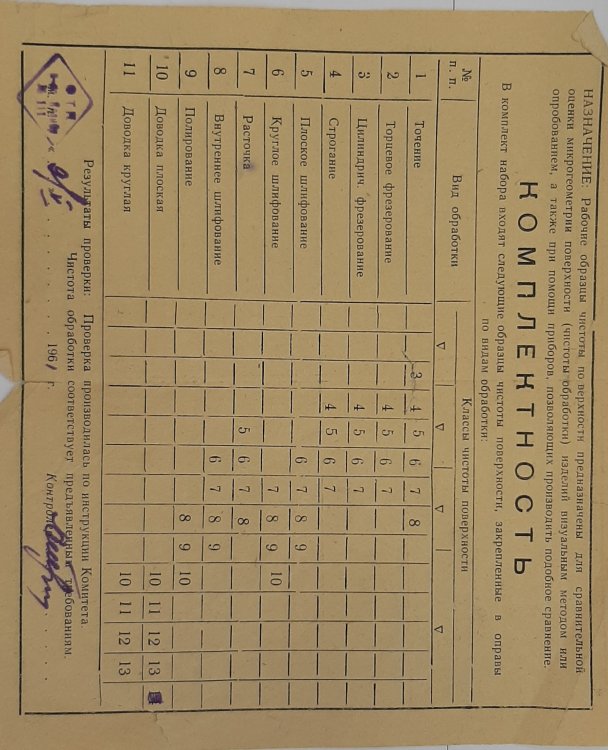 НАЗНАЧЕНИЕ: Рабочие образцы чистоты поверхности предназначены для сравнительной
оценки микрогеометрии поверхности (чистоты обработки) изделий визуальным методом или
опробованием, а также при помощи приборов, позволяющих производить подобное сравнение.
КОМПЛЕКТНОСТЬ
В комплект набора входят следующие образцы чистоты поверхности, закрепленные в оправы
по видам обработки:
№ п. п. Вид обработки Классы чистоты поверхности
▽ ▽ ▽ ▽
1 Точение 3 4 5 6 7 8
2 Торцевое фрезерование 4 5 6 7
3 Цилиндрич. фрезерование 4 5 6 7
4 Строгание 4 5 6 7
5 Плоское шлифование 6 7 8 9
6 Круглое шлифование 7 8 9 10
7 Расточка 5 6 7 8
8 Внутреннее шлифование 6 7 8 9
9 Полирование 8 9 10
10 Доводка плоская 10 11 12 13
11 Доводка круглая 10 11 12 13
Результаты проверки: Проверка производилась по инструкции Комитета.
Чистота обработки соответствует предъявленным требованиям.
1961 г.